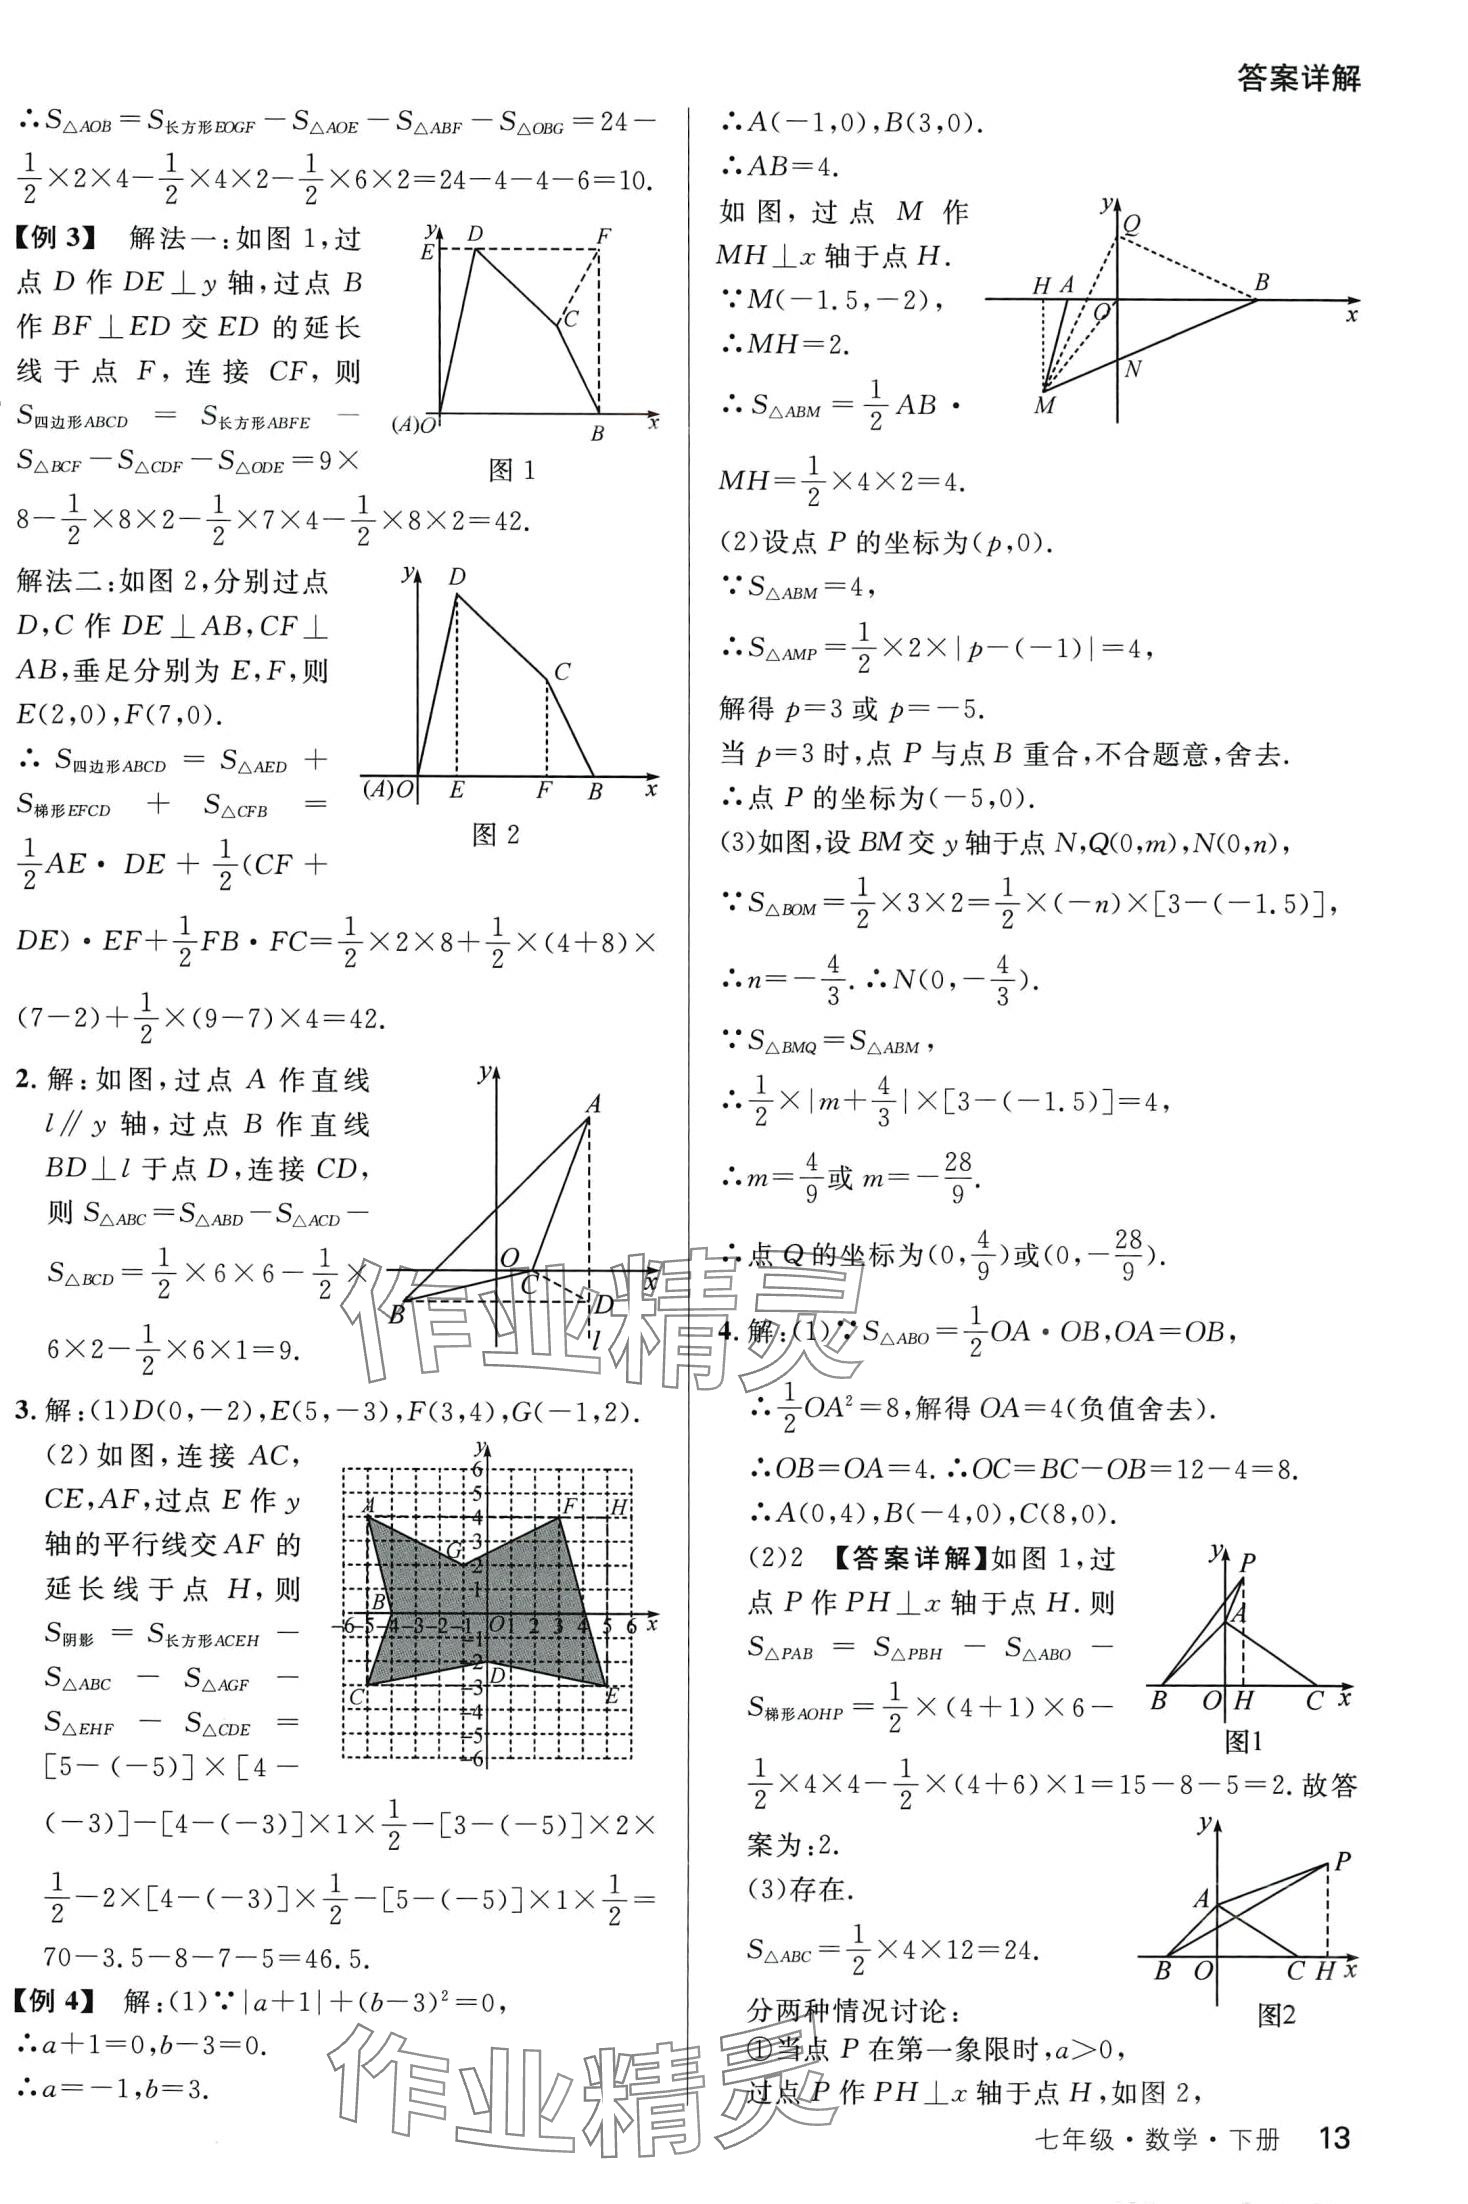 答案详解
∴S△AOB=S长方形EOGF-S△AOE-S△ABF-S△OBG=24-
1/2×2×4-1/2×4×2-1/2×6×2=24-4-4-6=10.
【例3】 解法一:如图1,过
点D作DE⊥y轴,过点B
作BF⊥ED交ED的延长
线于点F,连接CF,则
S四边形ABCD = S长方形ABFE -
S△BCF-S△CDF-S△ODE=9×
8-1/2×8×2-1/2×7×4-1/2×8×2=42.
y
E D F
C
(A)O B x
图1
解法二:如图2,分别过点
D,C作DE⊥AB,CF⊥
AB,垂足分别为E,F,则
E(2,0),F(7,0).
∴S四边形ABCD = S△AED +
S梯形EFCD + S△CFB =
1/2AE·DE+1/2(CF+
DE)·EF+1/2FB·FC=1/2×2×8+1/2×(4+8)×
(7-2)+1/2×(9-7)×4=42.
y D
C
(A)O E F B x
图2
2.解:如图,过点A作直线
l∥y轴,过点B作直线
BD⊥l于点D,连接CD,
则S△ABC=S△ABD-S△ACD-
S△BCD=1/2×6×6-1/2×
6×2-1/2×6×1=9.
y
A
O C x
B D
l
3.解:(1)D(0,-2),E(5,-3),F(3,4),G(-1,2).
(2)如图,连接AC,
CE,AF,过点E作y
轴的平行线交AF的
延长线于点H,则
S阴影 = S长方形ACEH -
S△ABC - S△AGF -
S△EHF - S△CDE =
[5-(-5)]×[4-
(-3)]-[4-(-3)]×1×1/2-[3-(-5)]×2×
1/2-2×[4-(-3)]×1/2-[5-(-5)]×1×1/2=
70-3.5-8-7-5=46.5.
y
6
5
A 4 F H
3
G 2
1
B
-6 -5 -4 -3 -2 -1 O 1 2 3 4 5 6 x
-1
-2
D
C -3 E
-4
-5
-6
【例4】 解:(1)∵|a+1|+(b-3)²=0,
∴a+1=0,b-3=0.
∴a=-1,b=3.
∴A(-1,0),B(3,0).
∴AB=4.
如图,过点M作
MH⊥x轴于点H.
∵M(-1.5,-2),
∴MH=2.
∴S△ABM=1/2AB·
MH=1/2×4×2=4.
y
Q
H A O B x
N
M
(2)设点P的坐标为(p,0).
∵S△ABM=4,
∴S△AMP=1/2×2×|p-(-1)|=4,
解得p=3或p=-5.
当p=3时,点P与点B重合,不合题意,舍去.
∴点P的坐标为(-5,0).
(3)如图,设BM交y轴于点N,Q(0,m),N(0,n),
∵S△BOM=1/2×3×2=1/2×(-n)×[3-(-1.5)],
∴n=-4/3.∴N(0,-4/3).
∵S△BMQ=S△ABM,
∴1/2×|m+4/3|×[3-(-1.5)]=4,
∴m=4/9或m=-28/9.
∴点Q的坐标为(0,4/9)或(0,-28/9).
4.解:(1)∵S△ABO=1/2OA·OB,OA=OB,
∴1/2OA²=8,解得OA=4(负值舍去).
∴OB=OA=4.∴OC=BC-OB=12-4=8.
∴A(0,4),B(-4,0),C(8,0).
(2)2 【答案详解】如图1,过
点P作PH⊥x轴于点H.则
S△PAB = S△PBH - S△ABO -
S梯形AOHP=1/2×(4+1)×6-
1/2×4×4-1/2×(4+6)×1=15-8-5=2.故答
案为:2.
y P
A
B O H C x
图1
(3)存在.
S△ABC=1/2×4×12=24.
分两种情况讨论:
①当点P在第一象限时,a>0,
过点P作PH⊥x轴于点H,如图2,
y
P
A
B O C H x
图2
作业精灵
作业精灵
七年级·数学·下册 13